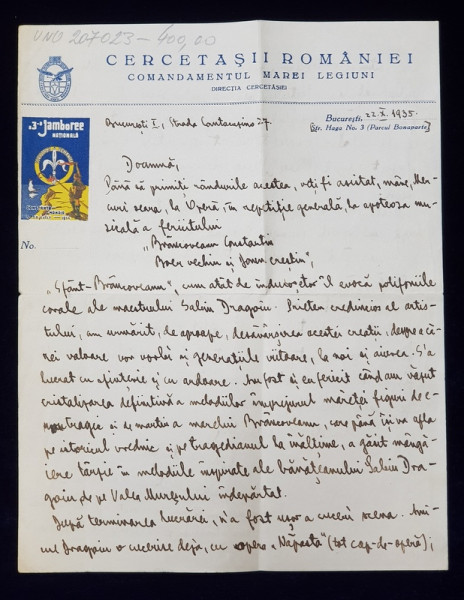 VNG 207023 – 400,00
CERCETAȘII ROMÂNIEI
COMANDAMENTUL MAREI LEGIUNI
DIRECȚIA CERCETĂȘIEI
București, 22.X.1935.
Str. Haga No. 3 (Parcul Bonaparte)
București I, Strada Cantacuzino 27.
a 3-a Jamboree
NAȚIONALĂ
No.
Doamnă,
Până să primiți rândurile acestea, veți fi asistat, mâne, Mer-
curi seara, la Operă, în repetiție generală, la apoteoza mu-
zicală a fericitului
"Brâncoveanu Constantin
Boer vechiu și Domn creștin";
"Sfânt-Brâncoveanu", cum atât de înduioșetor îl evocă polifoniile
corale ale maestrului Sabin Drăgoiu. Prieten credincios al artis-
tului, am urmărit, de aproape, desăvârșirea acestei creații, despre a că-
rei valoare vor vorbi și generațiile viitoare, la noi și aiurea. S'a
lucrat cu sfințenie și cu ardoare. Am fost și eu fericit când am văzut
cristalizarea definitivă a melodiilor împrejurul măreței figuri de
tragic și martir a marelui Brâncoveanu, care până îți va afla
pe istoricul vrednic și pe tragedianul la înălțime, a găsit mângâ-
iere târzie în melodiile inspirate ale bănățeanului Sabin Dră-
goiu de pe Valea Murșului îndepărtat.
După terminarea lucrării, n'a fost ușor a cuceri scena. Ami-
cul Drăgoiu o cucerise deja, cu opera "Năpasta" (tot cap-de-operă);